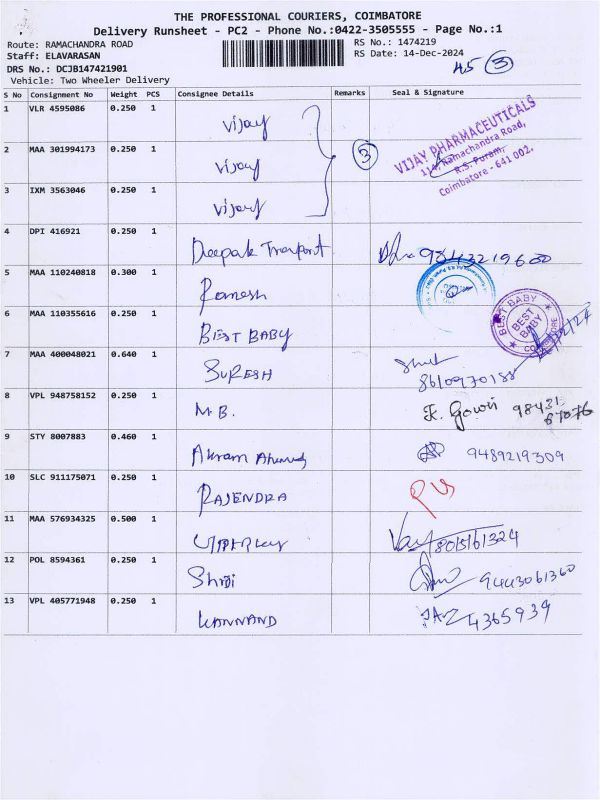 THE PROFESSIONAL COURIERS, COIMBATORE
Delivery Runsheet - PC2 - Phone No.:0422-3505555 - Page No.:1
Route: RAMACHANDRA ROAD
RS No.: 1474219
Staff: ELAVARASAN
RS Date: 14-Dec-2024
DRS No.: DCJB147421901
Vehicle: Two Wheeler Delivery
3
S No Consignment No Weight PCS Consignee Details Remarks Seal & Signature
1 VLR 4595086 0.250 1 Vijay
2 MAA 301994173 0.250 1 Vijay 3
VIJAY PHARMACEUTICALS
Ramachandra Road,
R.S. Puram,
Coimbatore - 641 002.
3 IXM 3563046 0.250 1 Vijay
4 DPI 416921 0.250 1 Deepak Transport 9843219600
5 MAA 110240818 0.300 1 Ramesh
6 MAA 110355616 0.250 1 BEST BABY
BEST BABY
BEST
BABY
COIMBATORE
7 MAA 400048021 0.640 1 SURESH
8610970188
8 VPL 948758152 0.250 1 M.B. Gowri 98431
67076
9 STY 8007883 0.460 1 Akram Ahamed 9489219309
10 SLC 911175071 0.250 1 RAJENDRA
11 MAA 576934325 0.500 1 8015161324
12 POL 8594361 0.250 1 9443061360
13 VPL 405771948 0.250 1 KANNAND 4365939